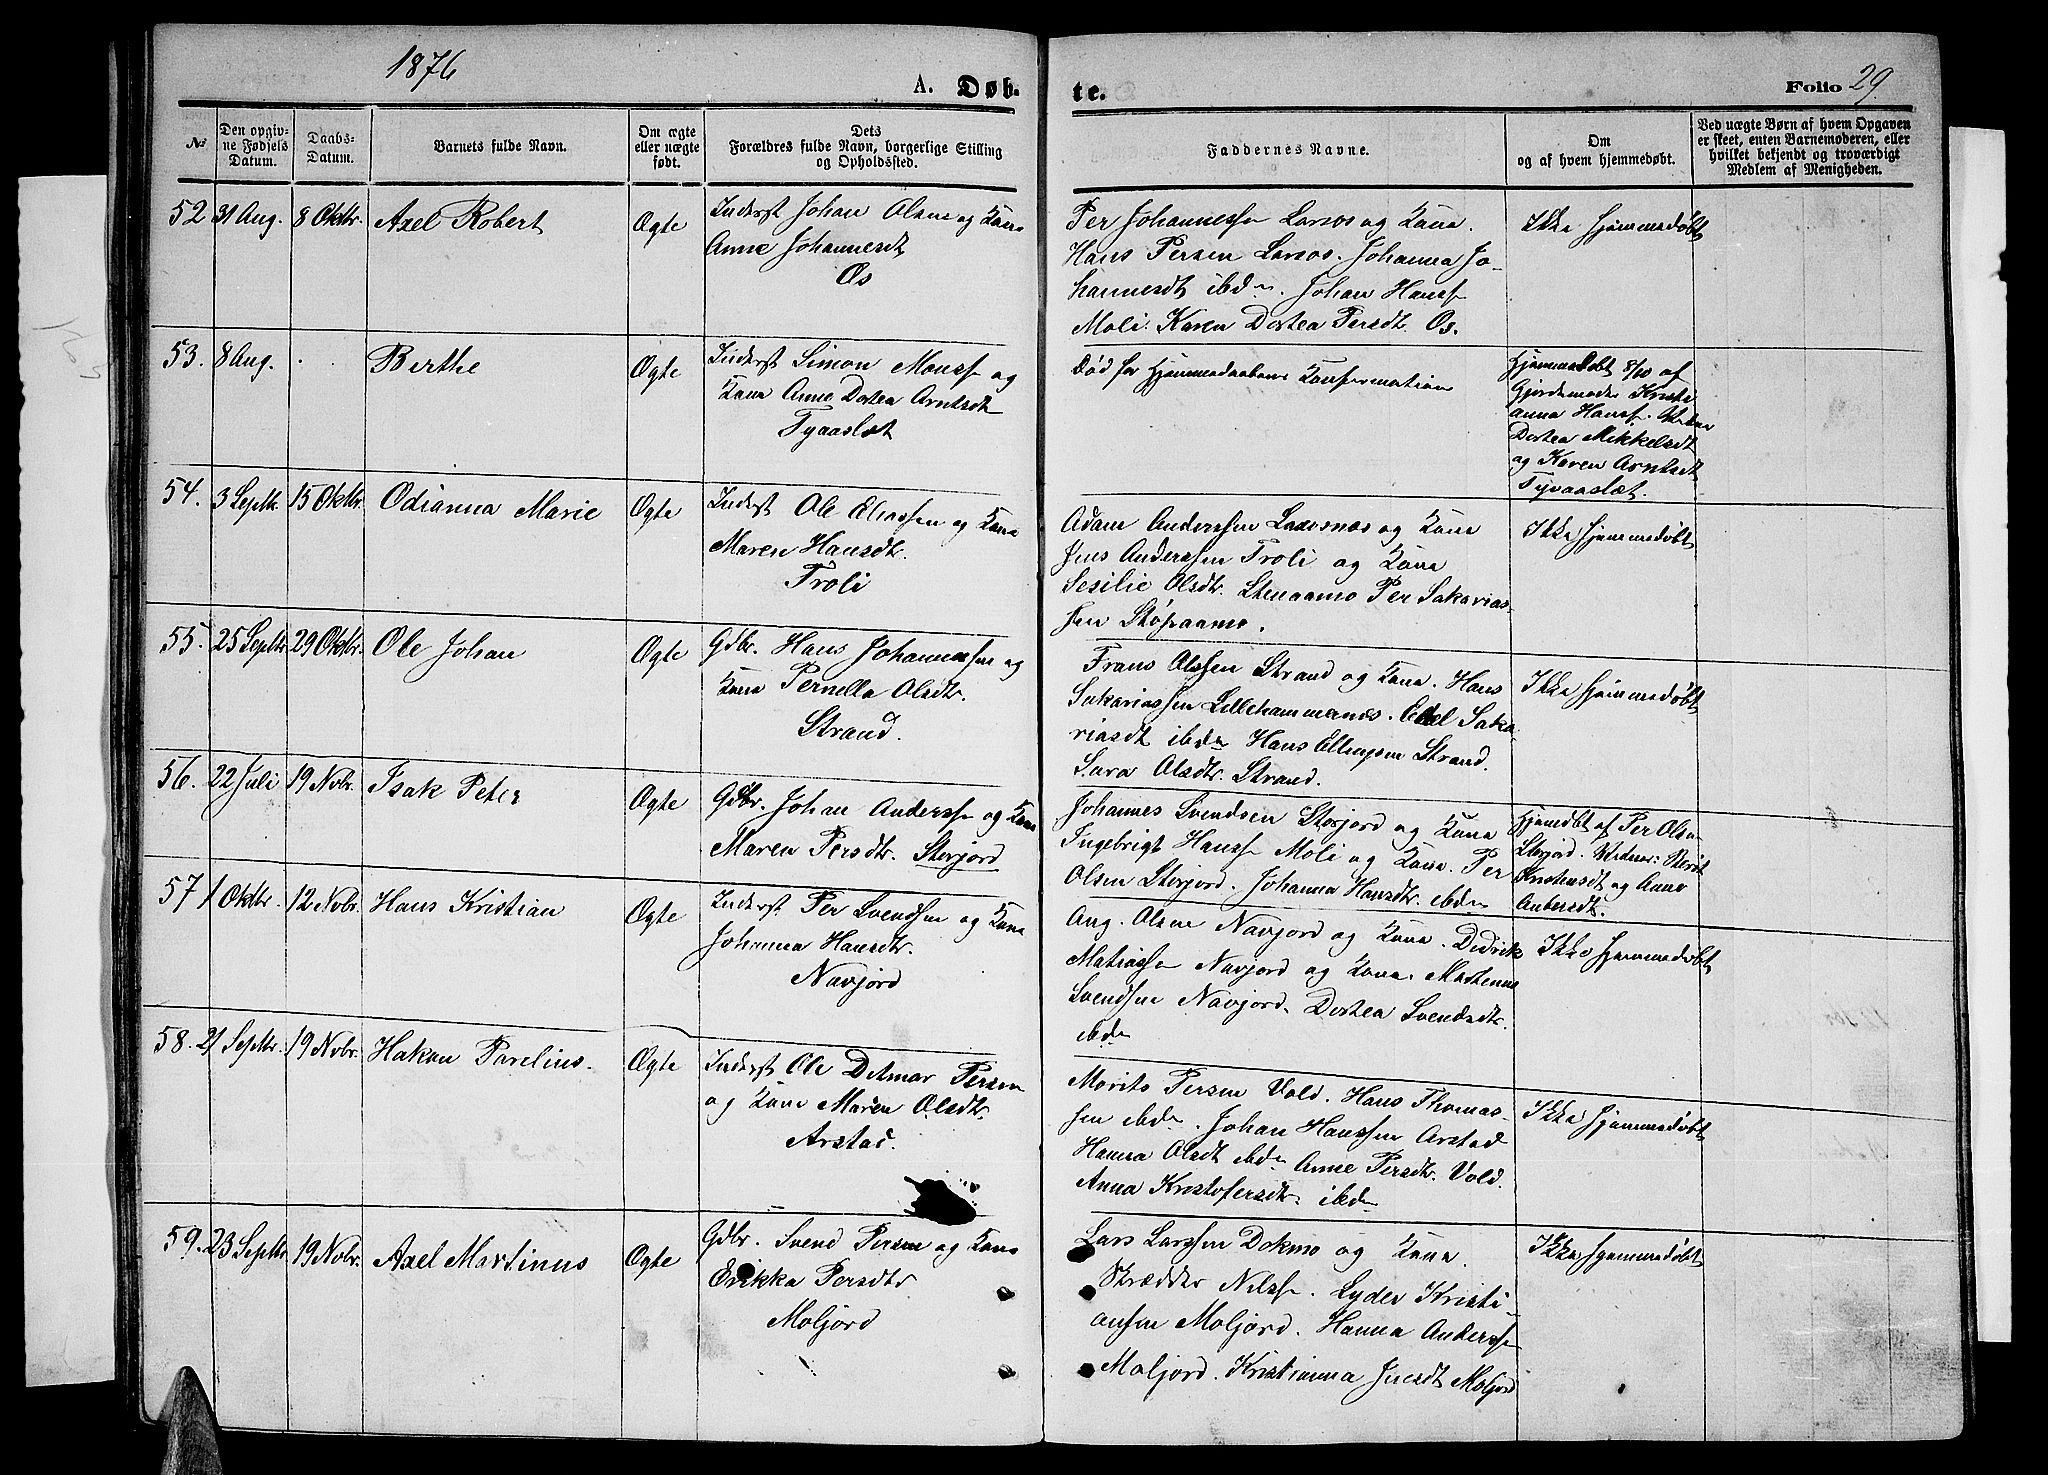 1876
A. Døb- te. Folio 29
№
Den opgiv-
ne Fødsels
Datum.
Daabs-
Datum.
Barnets fulde Navn.
Om ægte
eller uægte
født.
Dets
Forældres fulde Navn, borgerlige Stilling
og Opholdssted.
Faddernes Navne.
Om
og af hvem hjemmedøbt.
Ved uægte Børn af hvem Opgaven
er skeet, enten Barnemoderen, eller
hvilket bekjendt og troværdigt
Medlem af Menigheden.
52 31 Aug. 8 Oktbr. Axel Robert Ægte
Inderst Johan Olsen og Kone
Anne Johannesdt
Os
Per Johannessen Larsos og Kone.
Hans Persen Larsos. Johanna Jo-
hannesdt ibdn. Johan Hanss
Moli. Karen Dortea Persdt. Os.
Ikke hjemmedøbt
53. 8 Aug. Berthe Ægte
Inderst Simon Monss og
Kone Anne Dortea Arntsdt
Tyvaaslet
Død før Hjemmedaabens Konfirmation
Hjemmedøbt 8/10 af
Gjordemoder Kristi
anna Hanss.
Dortea Mikkelsdt
og Karen Arntsdt
Tyvaaslæt.
54. 3 Septbr. 15 Oktbr. Odianna Marie Ægte
Inderst Ole Eliassen og Kone
Maren Hansdtr.
Troli
Adam Anderssen Laxosnes og Kone
Jens Anderssen Troli og Kone
Sesilie Olsdtr. Stenaamo Per Sakarias-
sen Støpaamo.
Ikke hjemmedøbt
55. 25 Septbr 29 Oktbr. Ole Johan Ægte
Gdbr. Hans Johannessen og
Kone Pernella Olsdtr.
Strand.
Frans Olssen Strand og Kone. Hans
Sakariassen Lillehammernes. Edel Saka
riasdt ibdn Hans Ellingsen Strand.
Sara Olsdtr. Strand.
Ikke hjemmedøbt
56. 22 Juli 19 Novbr. Isak Peter Ægte
Gdbr. Johan Anderss og Kone
Maren Persdtr. Storjord
Johannes Svendsen Storjord og Kone
Ingebrigt Hanss Moli og Kone. Per
Olsen Storjord. Johanna Hansdtr. ibdn
Hjemdbt af Per Olsen
Storjord. Vidner: Berit
Kristensdt og Anne
Andersdt.
57 1 Oktbr. 12 Novbr. Hans Kristian Ægte
Inderst Per Svendsen og Kone
Johanna Hansdtr.
Navjord
Aug. Olsen Navjord og Kone. Didrik
Matiassen Navjord og Kone. Martenne
Svendsen Navjord. Dortea Svendsdtr.
ibdn
Ikke hjemmedøbt
58. 21 Septbr. 19 Novbr. Hakon Parelius. Ægte
Inderst Ole Detmar Persen
og Kone Maren Olsdtr.
Arstad.
Morits Persen Vold. Hans Thomas-
sen ibdn. Johan Hanssen Arstad
Hanna Olsdt ibdn Anne Persdtr. Vold.
Anna Kristofersdtr. ibdn
Ikke hjemmedøbt
59. 23 Septbr 19 Novbr. Axel Martinus Ægte
Gdbr. Svend Persen og Kone
Erikka Persdtr
Moljord
Lars Larssen Dokmo og Kone.
Skrædder Nilss. Lyder Kristi-
ansen Moljord. Hanna Anderss
Moljord. Kristianna Jensdt Moljord
Ikke hjemmedøbt